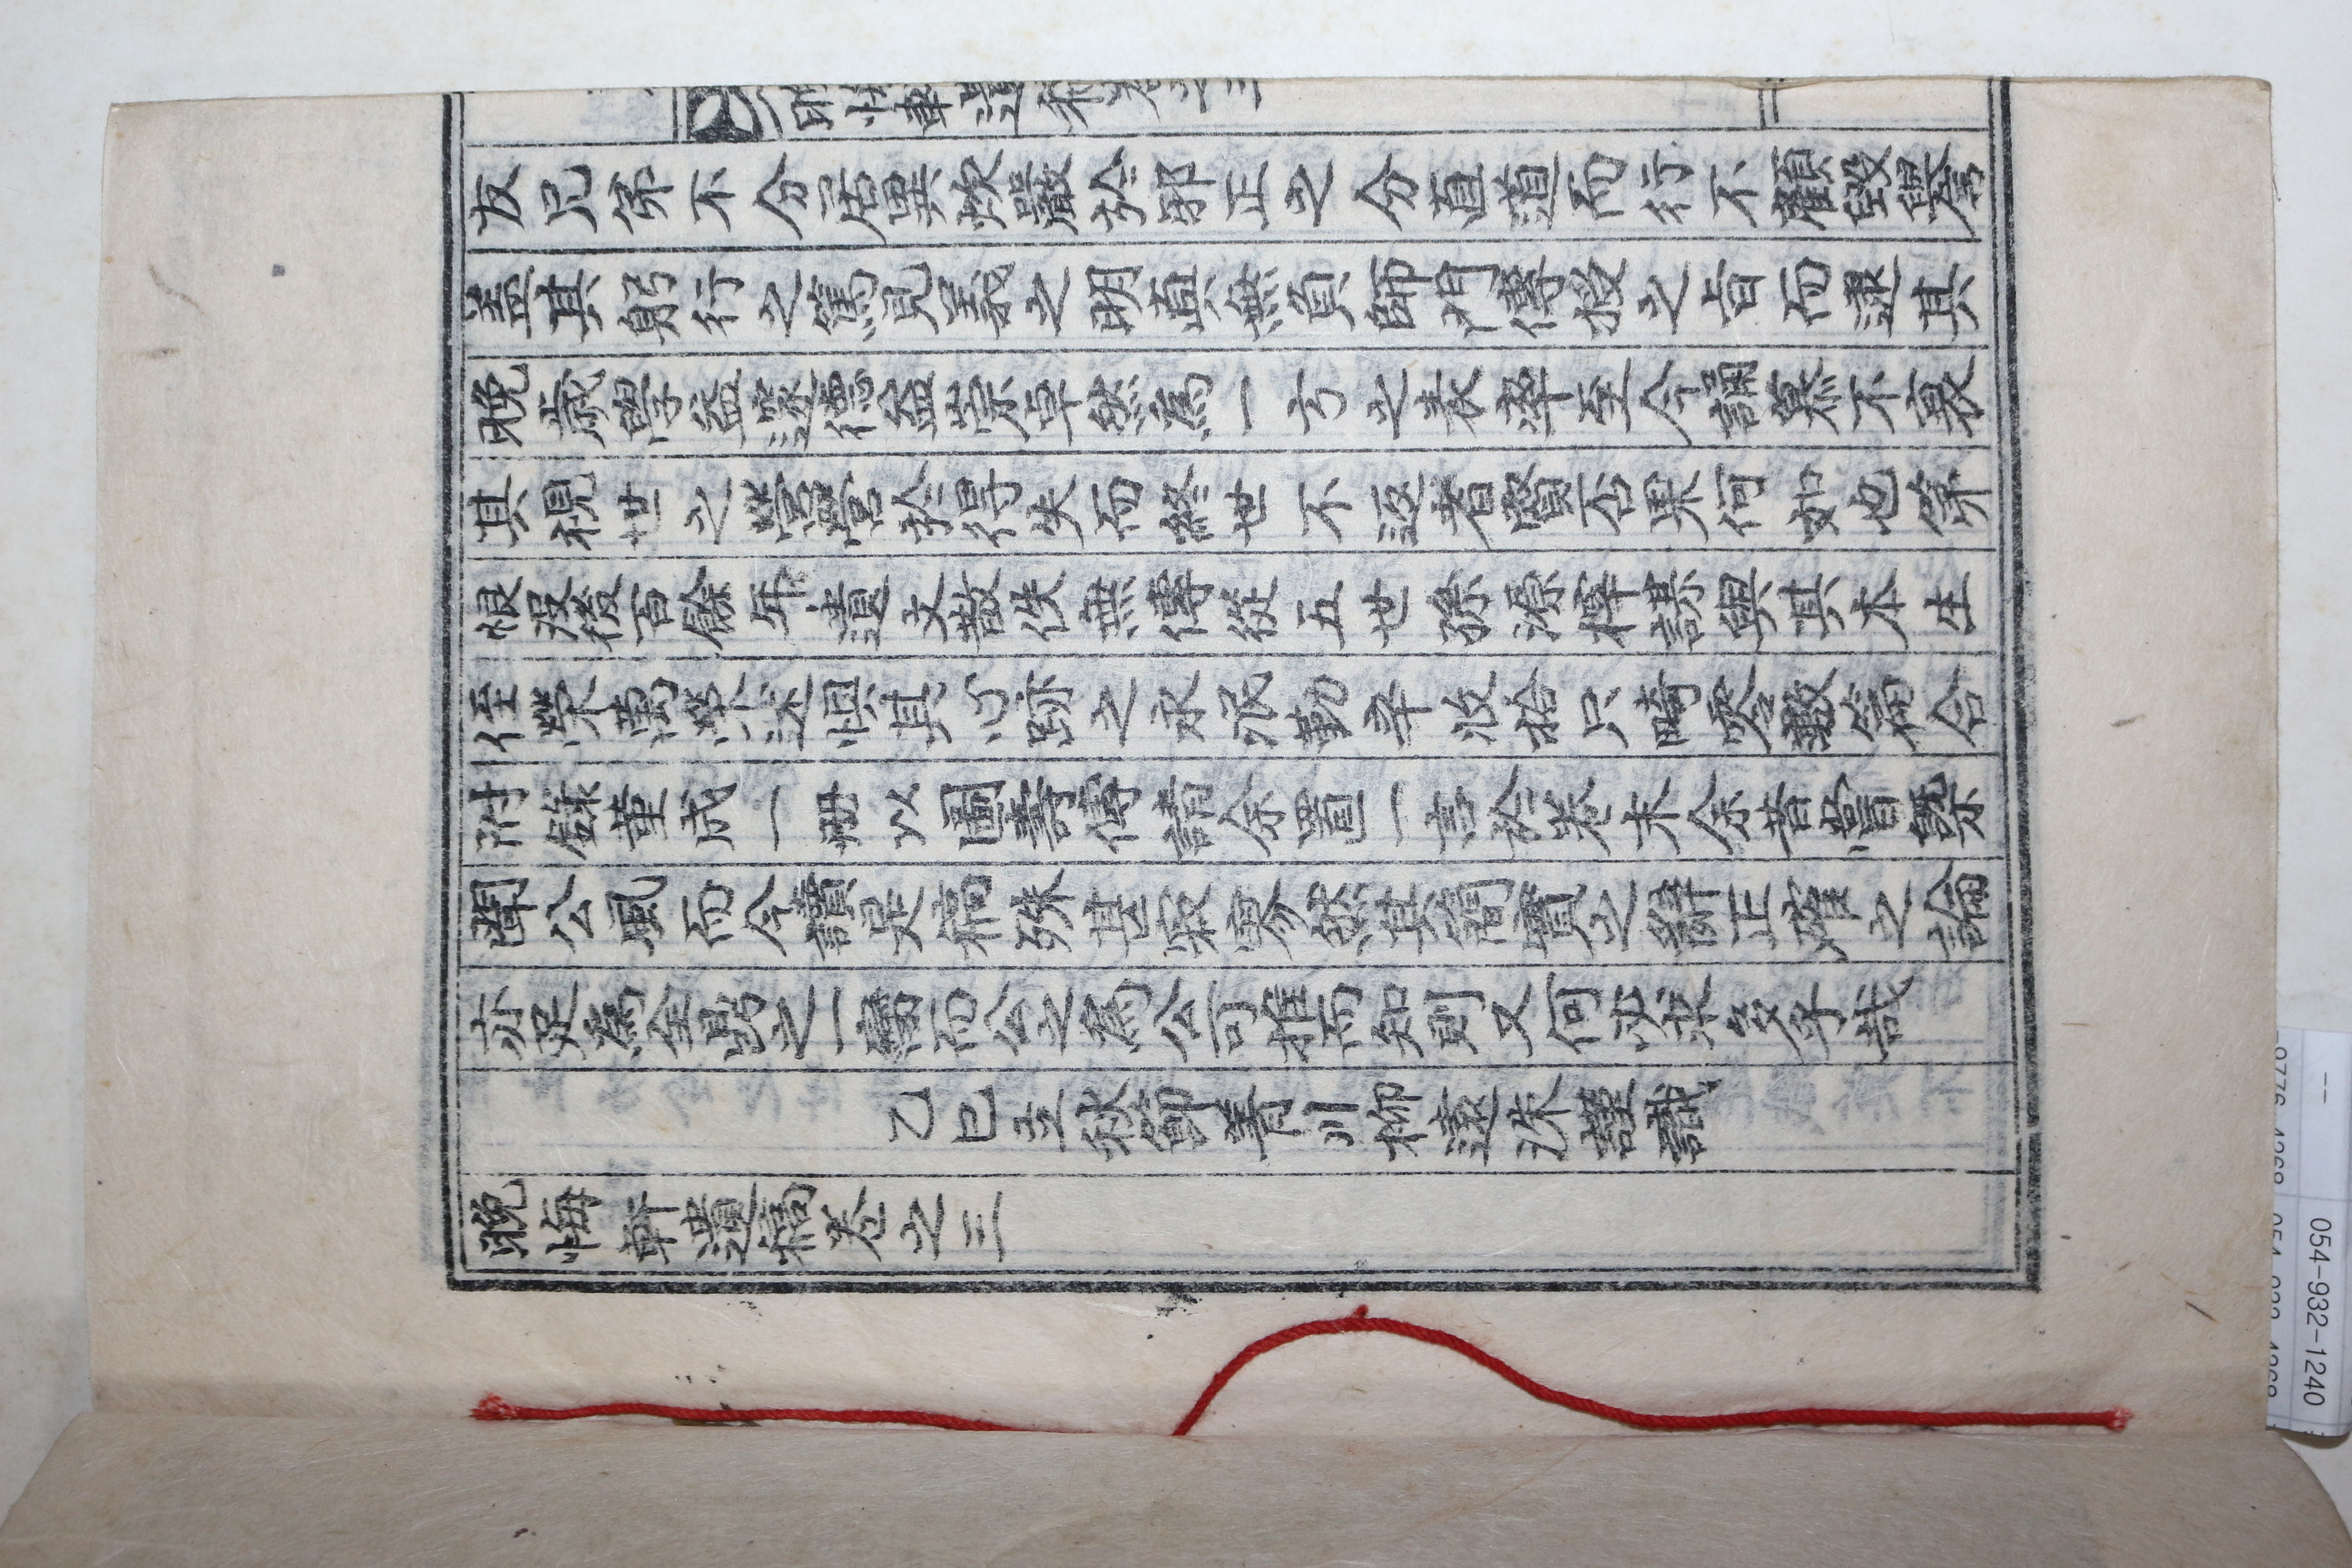 晚悔軒遺稿卷之三
友兄弟不分居異炊嚴於邪正之分直道而行不顧毀譽
盖其躬行之篤見義之明眞無負師門傳授之旨而逮其
晚歲學益邃德益崇卓然爲一方之表率至今誦慕不衰
其視世之營營於得失而終世不返者賢否果何如也第
恨沒後百餘年遺文散佚無傳從五世孫源檡謀與其本生
侄榮萬榮述惧其心跡之永泯勤辛收拾只畸零數篇合
附錄董成一册以圖壽傳請余置一言於卷末余昔嘗槩
聞公風而今讀是稿殊甚寂寥然其簡實之辭正確之論
亦足爲全鼎之一臠而公之爲公可推而知則又何必求多乎哉
乙巳立秋節菁川柳遠洙謹識
晚悔軒遺稿卷之三
054-932-1240